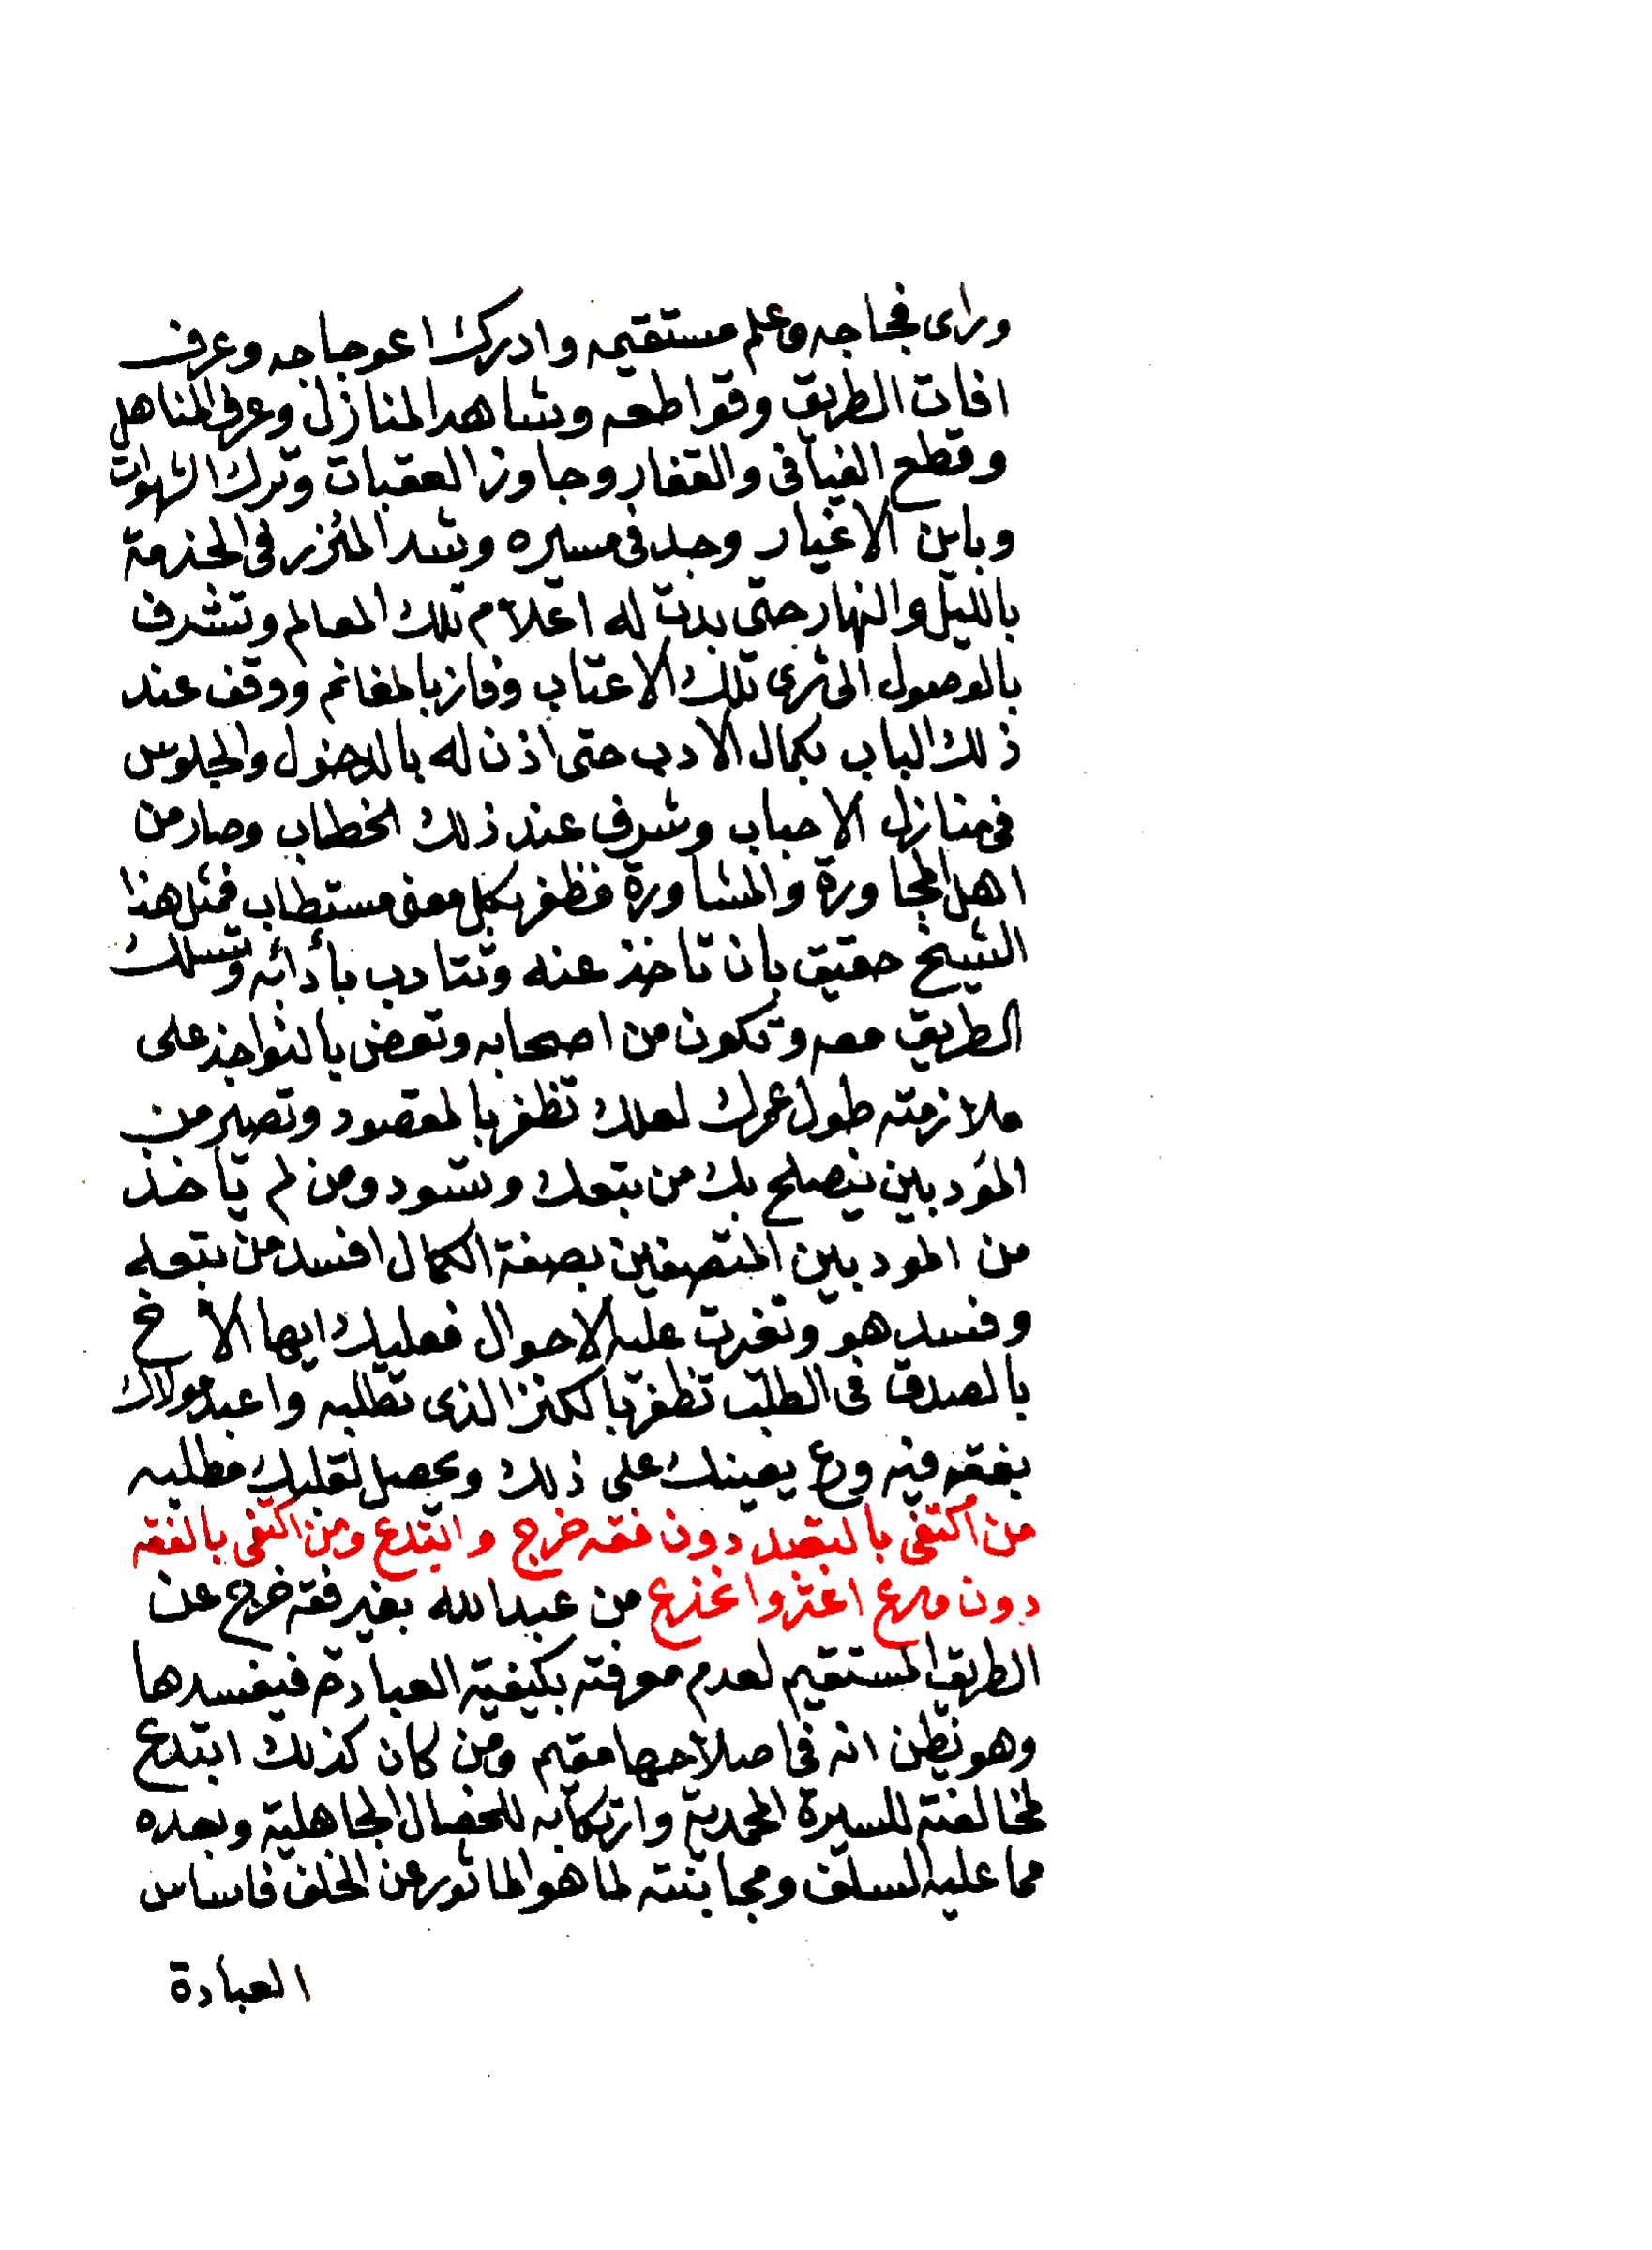 وراى فجاجه وعلم مستقيمه وادرك اعوجاجه وعرف
افات الطريق وقواطعه وشاهد المنازل وعرف المناهل
وقطع الفيافى والقفار وجاوز العقبات وترك الشهوات
وباين الاغيار وجد فى مسيره وشد المئزر فى الخدمة
بالليل والنهار حتى بدت له اعلام تلك المعالم وتشرف
بالوصول الى ثرى تلك الاعتاب وفاز بالمغانم ووقف عند
ذلك الباب بكمال الادب حتى اذن له بالدخول والجلوس
فى منازل الاحباب وشرف عند ذلك الخطاب وصار من
اهل المجاورة والمشاورة فظفر بكل معنى مستطاب فمثل هذا
الشيخ حقيق بان تاخذ عنه وتتادب بأدائه وتسلك
الطريق معه وتكون من اصحابه وتعض بالنواجذ على
ملازمته طول عمرك لعلك تظفر بالمقصود وتصير من
المؤدبين فيصلح بك من يتبعك وتسود ومن لم ياخذ
من المودبين المتصفين بصفة الكمال افسد من يتبعه
وفسد هو وتغيرت عليه الاحوال فعليك ايها الاخ
بالصدق فى الطلب تظفر بالكنز الذى تطلبه واعبد مولاك
بفقه فيه ورع يعينك على ذلك ويحصل لقلبك مطلبه
من اكتفى بالتعبد دون فقه خرج وابتدع ومن اكتفى بالفقه
دون ورع اغتر وانخدع من عبد الله بغير فقه خرج عن
الطريق المستقيم لعدم معرفته بكيفية العبادة فيفسدها
وهو يظن انه فى اصلاحها مقيم ومن كان كذلك ابتدع
لمخالفته للسيرة المحمدية وارتكابه للخصال الجاهلية وبعده
مما عليه السلف ومجانبته لما هو الماثور عن الخلف فاساس
العبادة